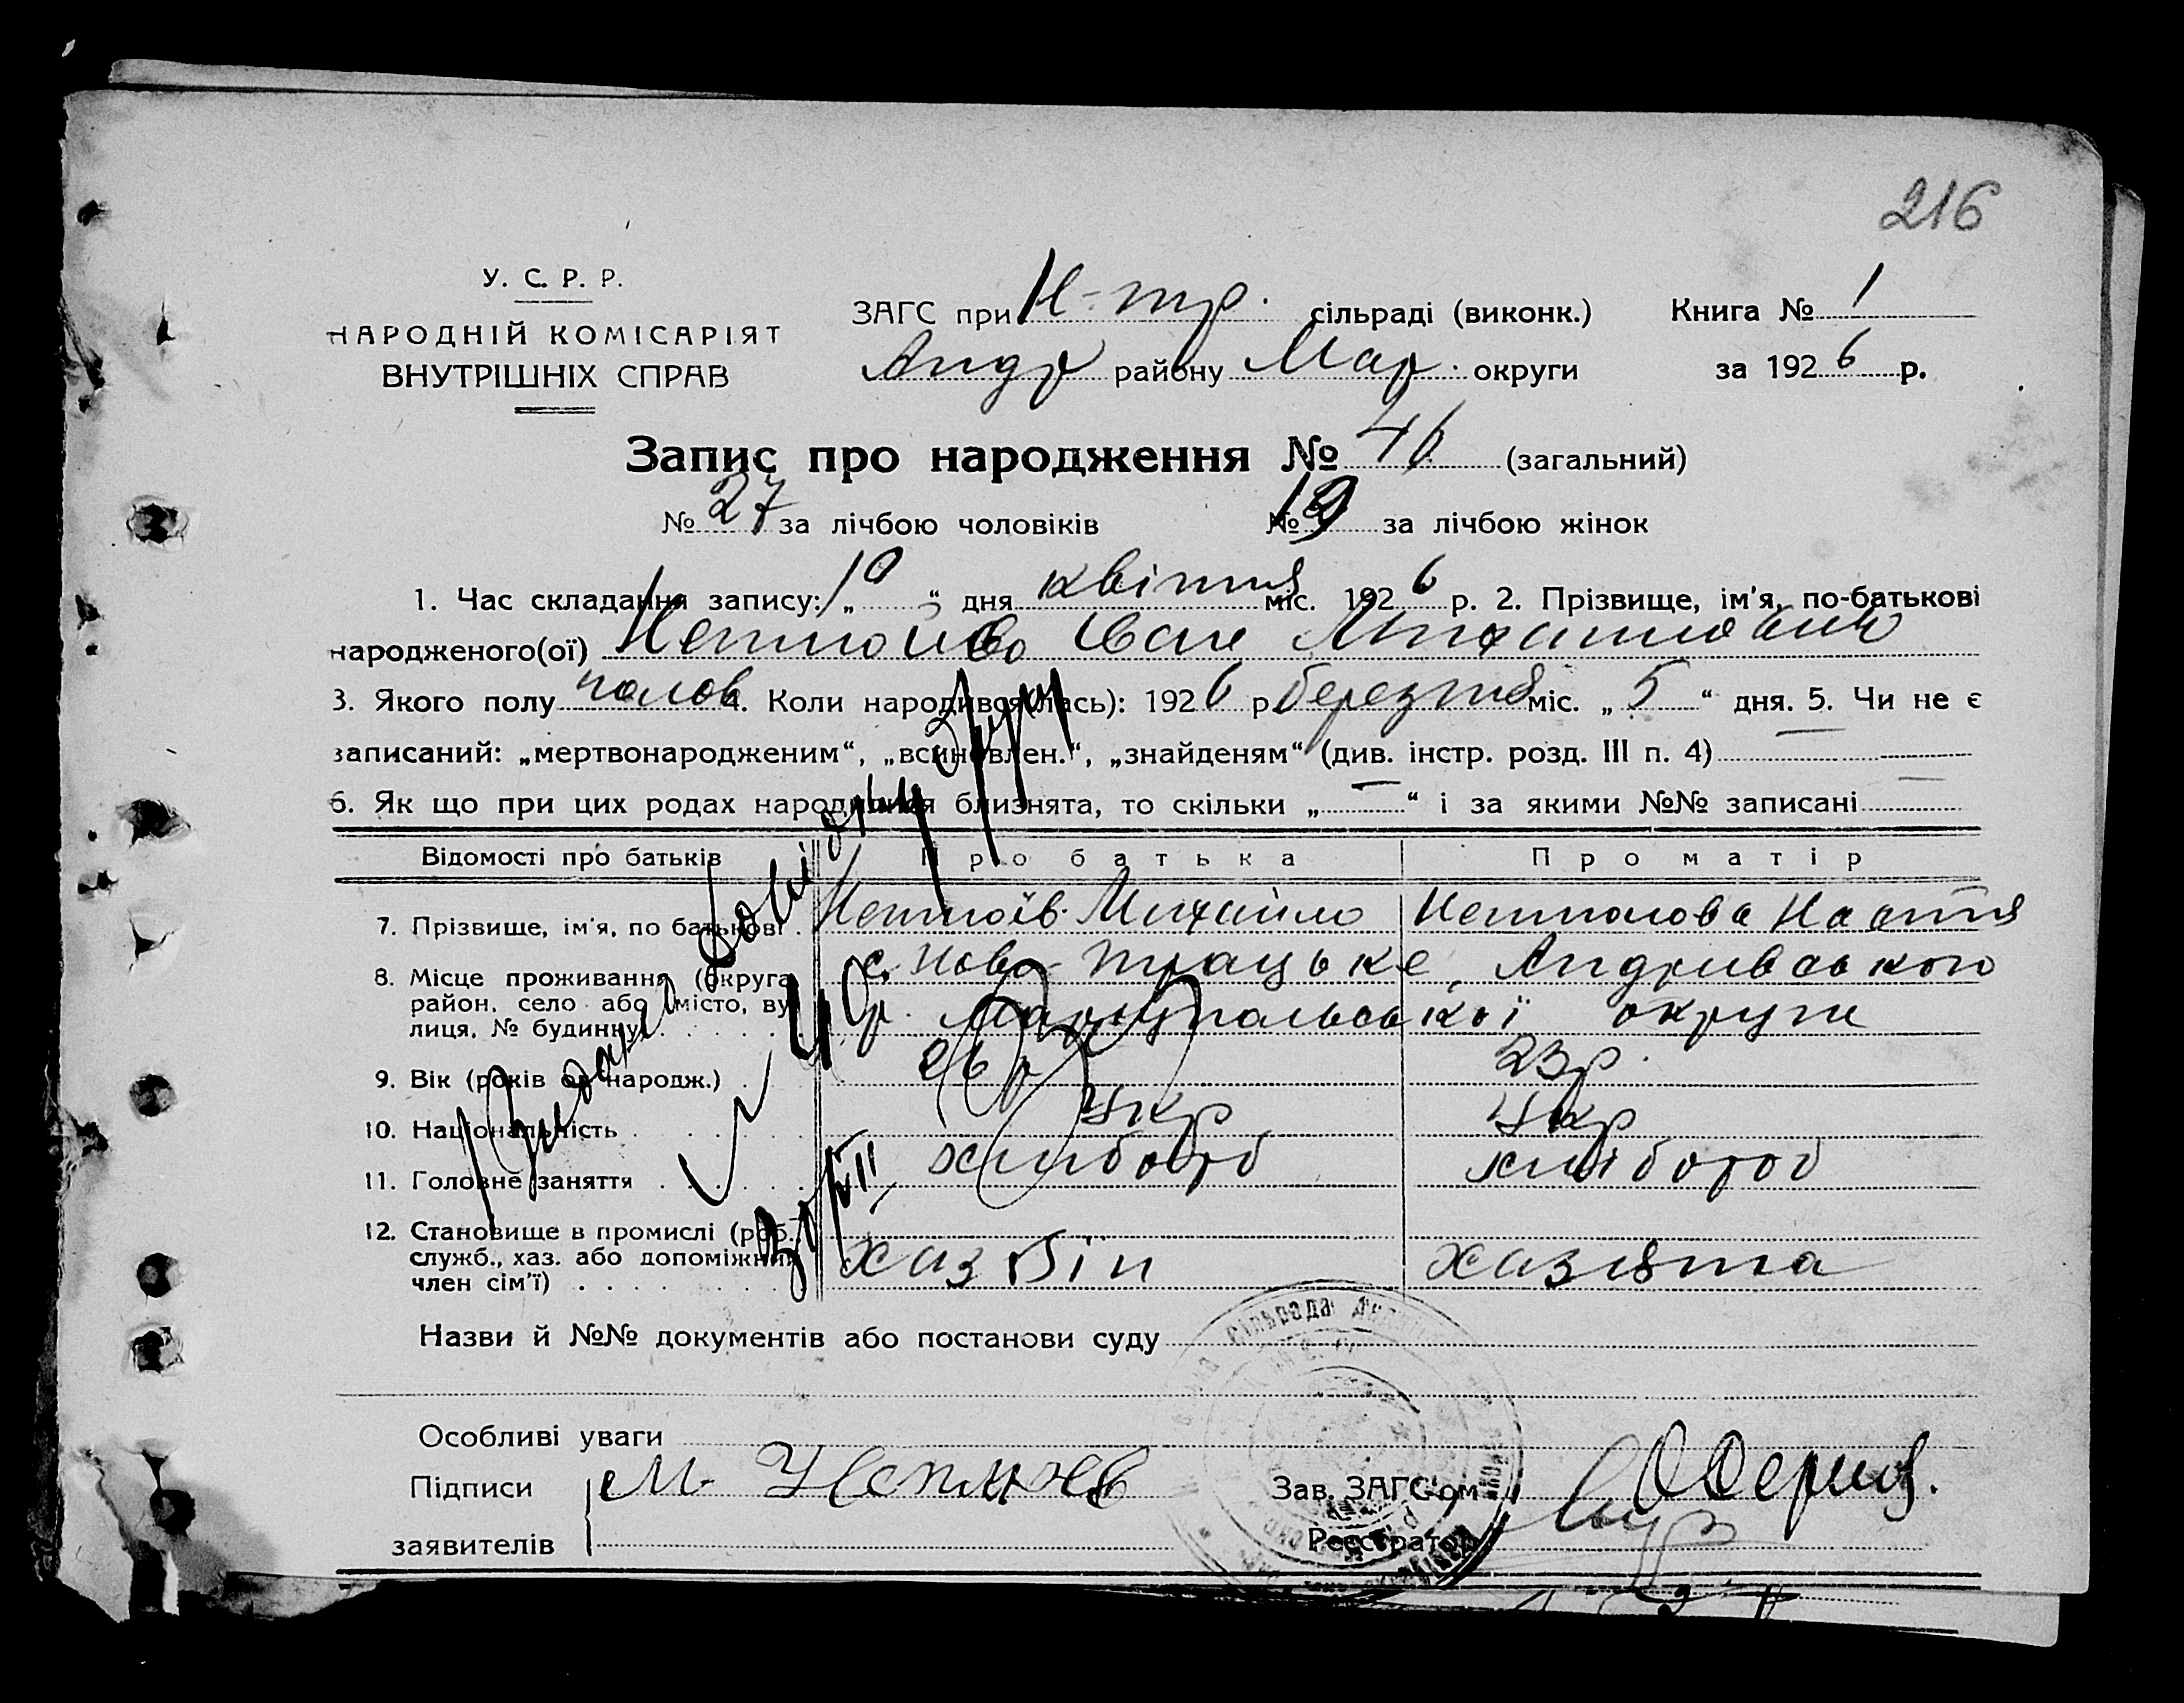 216
У. С. Р. Р.
НАРОДНІЙ КОМІСАРІЯТ
ВНУТРІШНІХ СПРАВ
ЗАГС при Н-тр. сільраді (виконк.) Книга № 1
Андр району Мар. округи за 1926 р.
Запис про народження № 46 (загальний)
№ 27 за лічбою чоловіків № 19 за лічбою жінок
1. Час складання запису: „10“ дня квітня міс. 1926 р. 2. Прізвище, ім'я, по-батькові
народженого(ої) Іван Михайлович
3. Якого полу чолов 4. Коли народився(лась): 1926 р. березня міс. „5“ дня. 5. Чи не є
записаний: „мертвонародженим“, „всиновлен.“, „знайденям“ (див. інстр. розд. III п. 4) —
6. Як що при цих родах народилися близнята, то скільки „—“ і за якими №№ записані —
Відомості про батьків Про батька Про матір
7. Прізвище, ім'я, по батькові . Михайло Настя
8. Місце проживання (округа, район, село або місто, вулиця, № будинку) с. Ново-Троцьке Андриівського
р. Маріупольської округи
9. Вік (років од народж.) . 26 р 23 р.
10. Національність . Укр Укр
11. Головне заняття . хлібороб хлібороб
12. Становище в промислі (роб., служб., хаз. або допоміжний член сім'ї) . хазяін хазяйка
Назви й №№ документів або постанови суду
Особливі уваги
Підписи М. Неплюєв Зав. ЗАГС'ом
заявителів Реєстратор